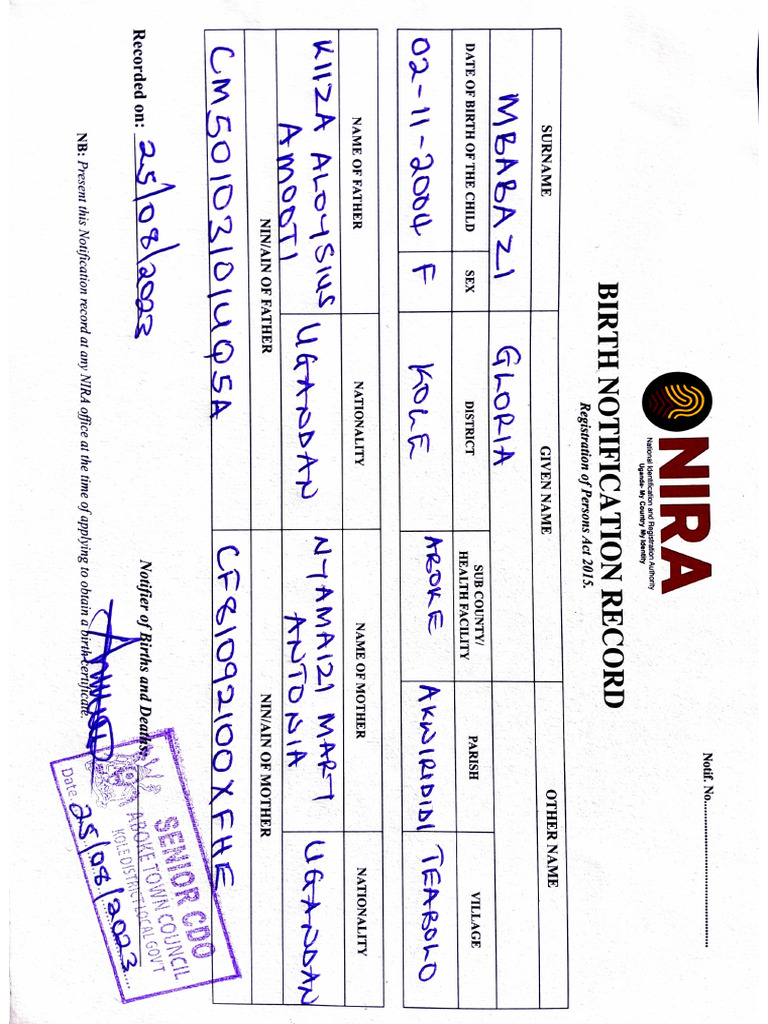 NIRA
National Identification and Registration Authority
Uganda- My Country My Identity
Notif. No.
BIRTH NOTIFICATION RECORD
Registration of Persons Act 2015.
SURNAME GIVEN NAME OTHER NAME
MBABAZI GLORIA
DATE OF BIRTH OF THE CHILD SEX DISTRICT SUB COUNTY/ HEALTH FACILITY PARISH VILLAGE
02-11-2004 F KOLE ABOKE AKWIRIDIDI TEABOLO
NAME OF FATHER NATIONALITY NAME OF MOTHER NATIONALITY
KIIZA ALOYSIUS UGANDAN NYAMAIZI MARY UGANDAN
AMOOTI ANTONIA
NIN/AIN OF FATHER NIN/AIN OF MOTHER
CM50103101UQ5A CF81092100XFHE
Recorded on: 25/08/2023 Notifier of Births and Deaths:
NB: Present this Notification record at any NIRA office at the time of applying to obtain a birth certificate.
SENIOR CDO
ABOKE TOWN COUNCIL
KOLE DISTRICT LOCAL GOVT
Date: 25/08/2023